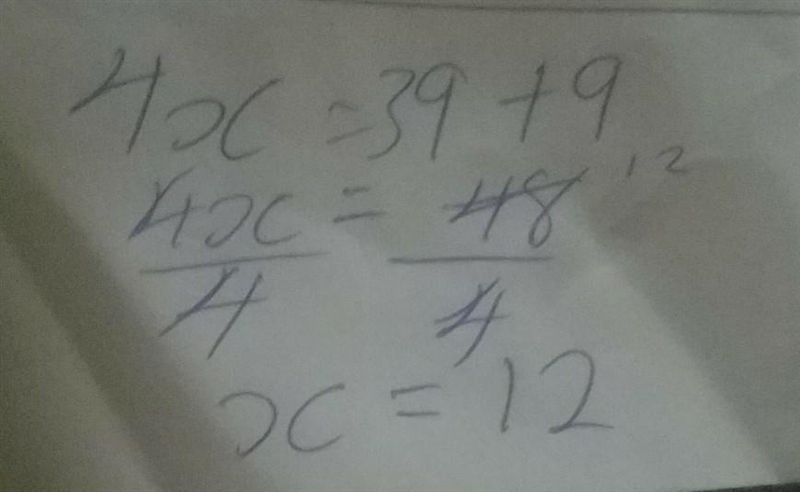 4x = 39 + 9
4x = 48 12
4 4
x = 12